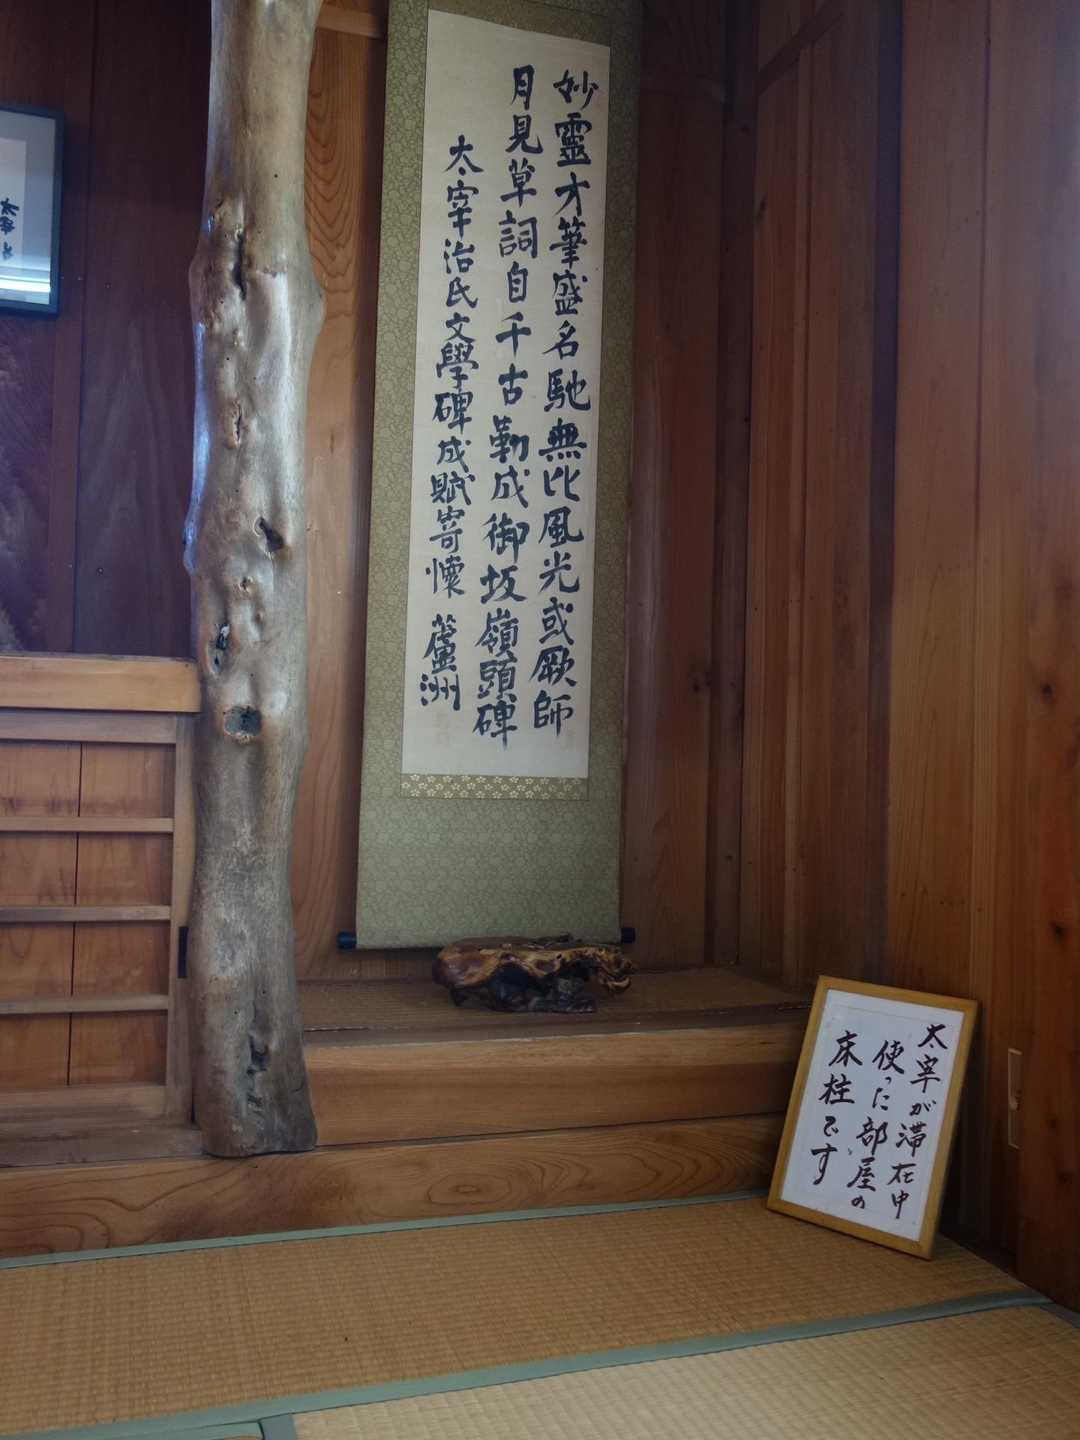 妙靈才筆盛名馳無比風光或厥師
月見草詞自千古勒成御坂嶺頭碑
太宰治氏文學碑成賦寄懷 蘆洲
太宰が滞在中
使った部屋の
床柱です
太宰